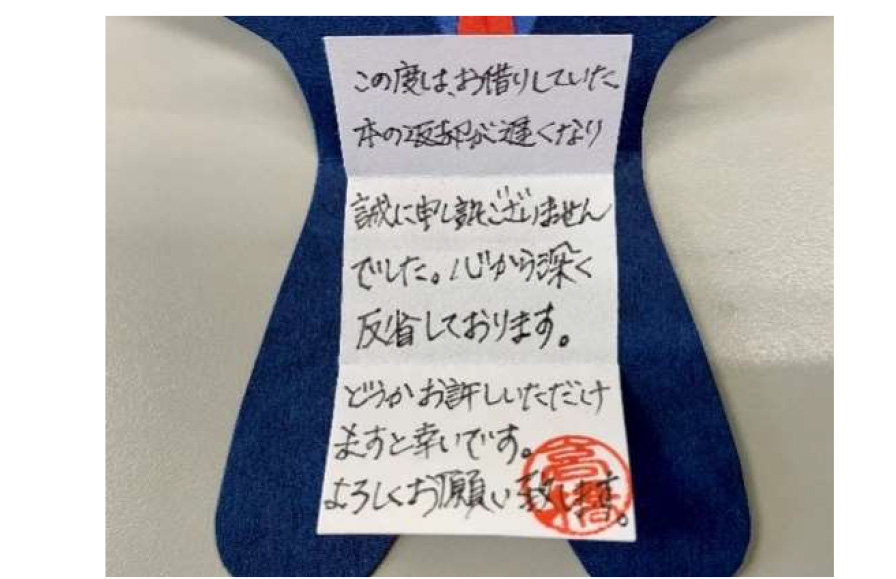 この度は、お借りしていた
本の返却が遅くなり
誠に申し訳ございません
でした。心から深く
反省しております。
どうかお許しいただけ
ますと幸いです。
よろしくお願い致します。
高橋